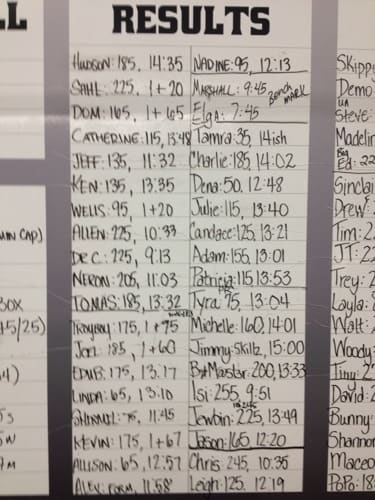 LL
RESULTS
HUDSON: 185, 14:35
SAHL: 225, 1+20
DOM: 165, 1+65
CATHERINE: 115, 13:48
JEFF: 135, 11:32
KEN: 135, 13:35
WELLS: 95, 1+20
ALLEN: 225, 10:33
DE C: 225, 9:13
NERON: 205, 11:03
TOMAS: 185, 13:32
175, 1+75
JOEL: 185, 1+60
EDUB: 175, 13:17
LINDA: 65, 13:10
11:45
KEVIN: 175, 1+67
ALLISON: 65, 12:57
ALEX: FORM, 11:58
NADINE: 95, 12:13
MARSHALL: 9:45 BENCH MARK
Elga: 7:45
Tamra: 35, 14ish
Charlie: 185, 14:02
Dena: 50, 12:48
Julie: 115, 13:40
Candace: 125, 13:21
Adam: 155, 13:01
Patricia: 115, 13:53
Tyra: 95, 13:04
Michelle: 160, 14:01
Jimmy: Skillz, 15:00
200, 13:33
Isi: 255, 9:51
225, 13:49
Jason: 165, 12:20
Chris: 245, 10:35
Leigh: 125, 12:19
Skippy
Demo
Steve:
Madelin
Big
Ed: 22
Sinclai
Drew:
Tim: 2
JT: 2
Trey: 2
Layla:
Walt:
Woody
Tiny: 2
David: 2
Bunny:
Shannon
Maceo
PoPo: 18
MIN CAP)
BOX
45/25)